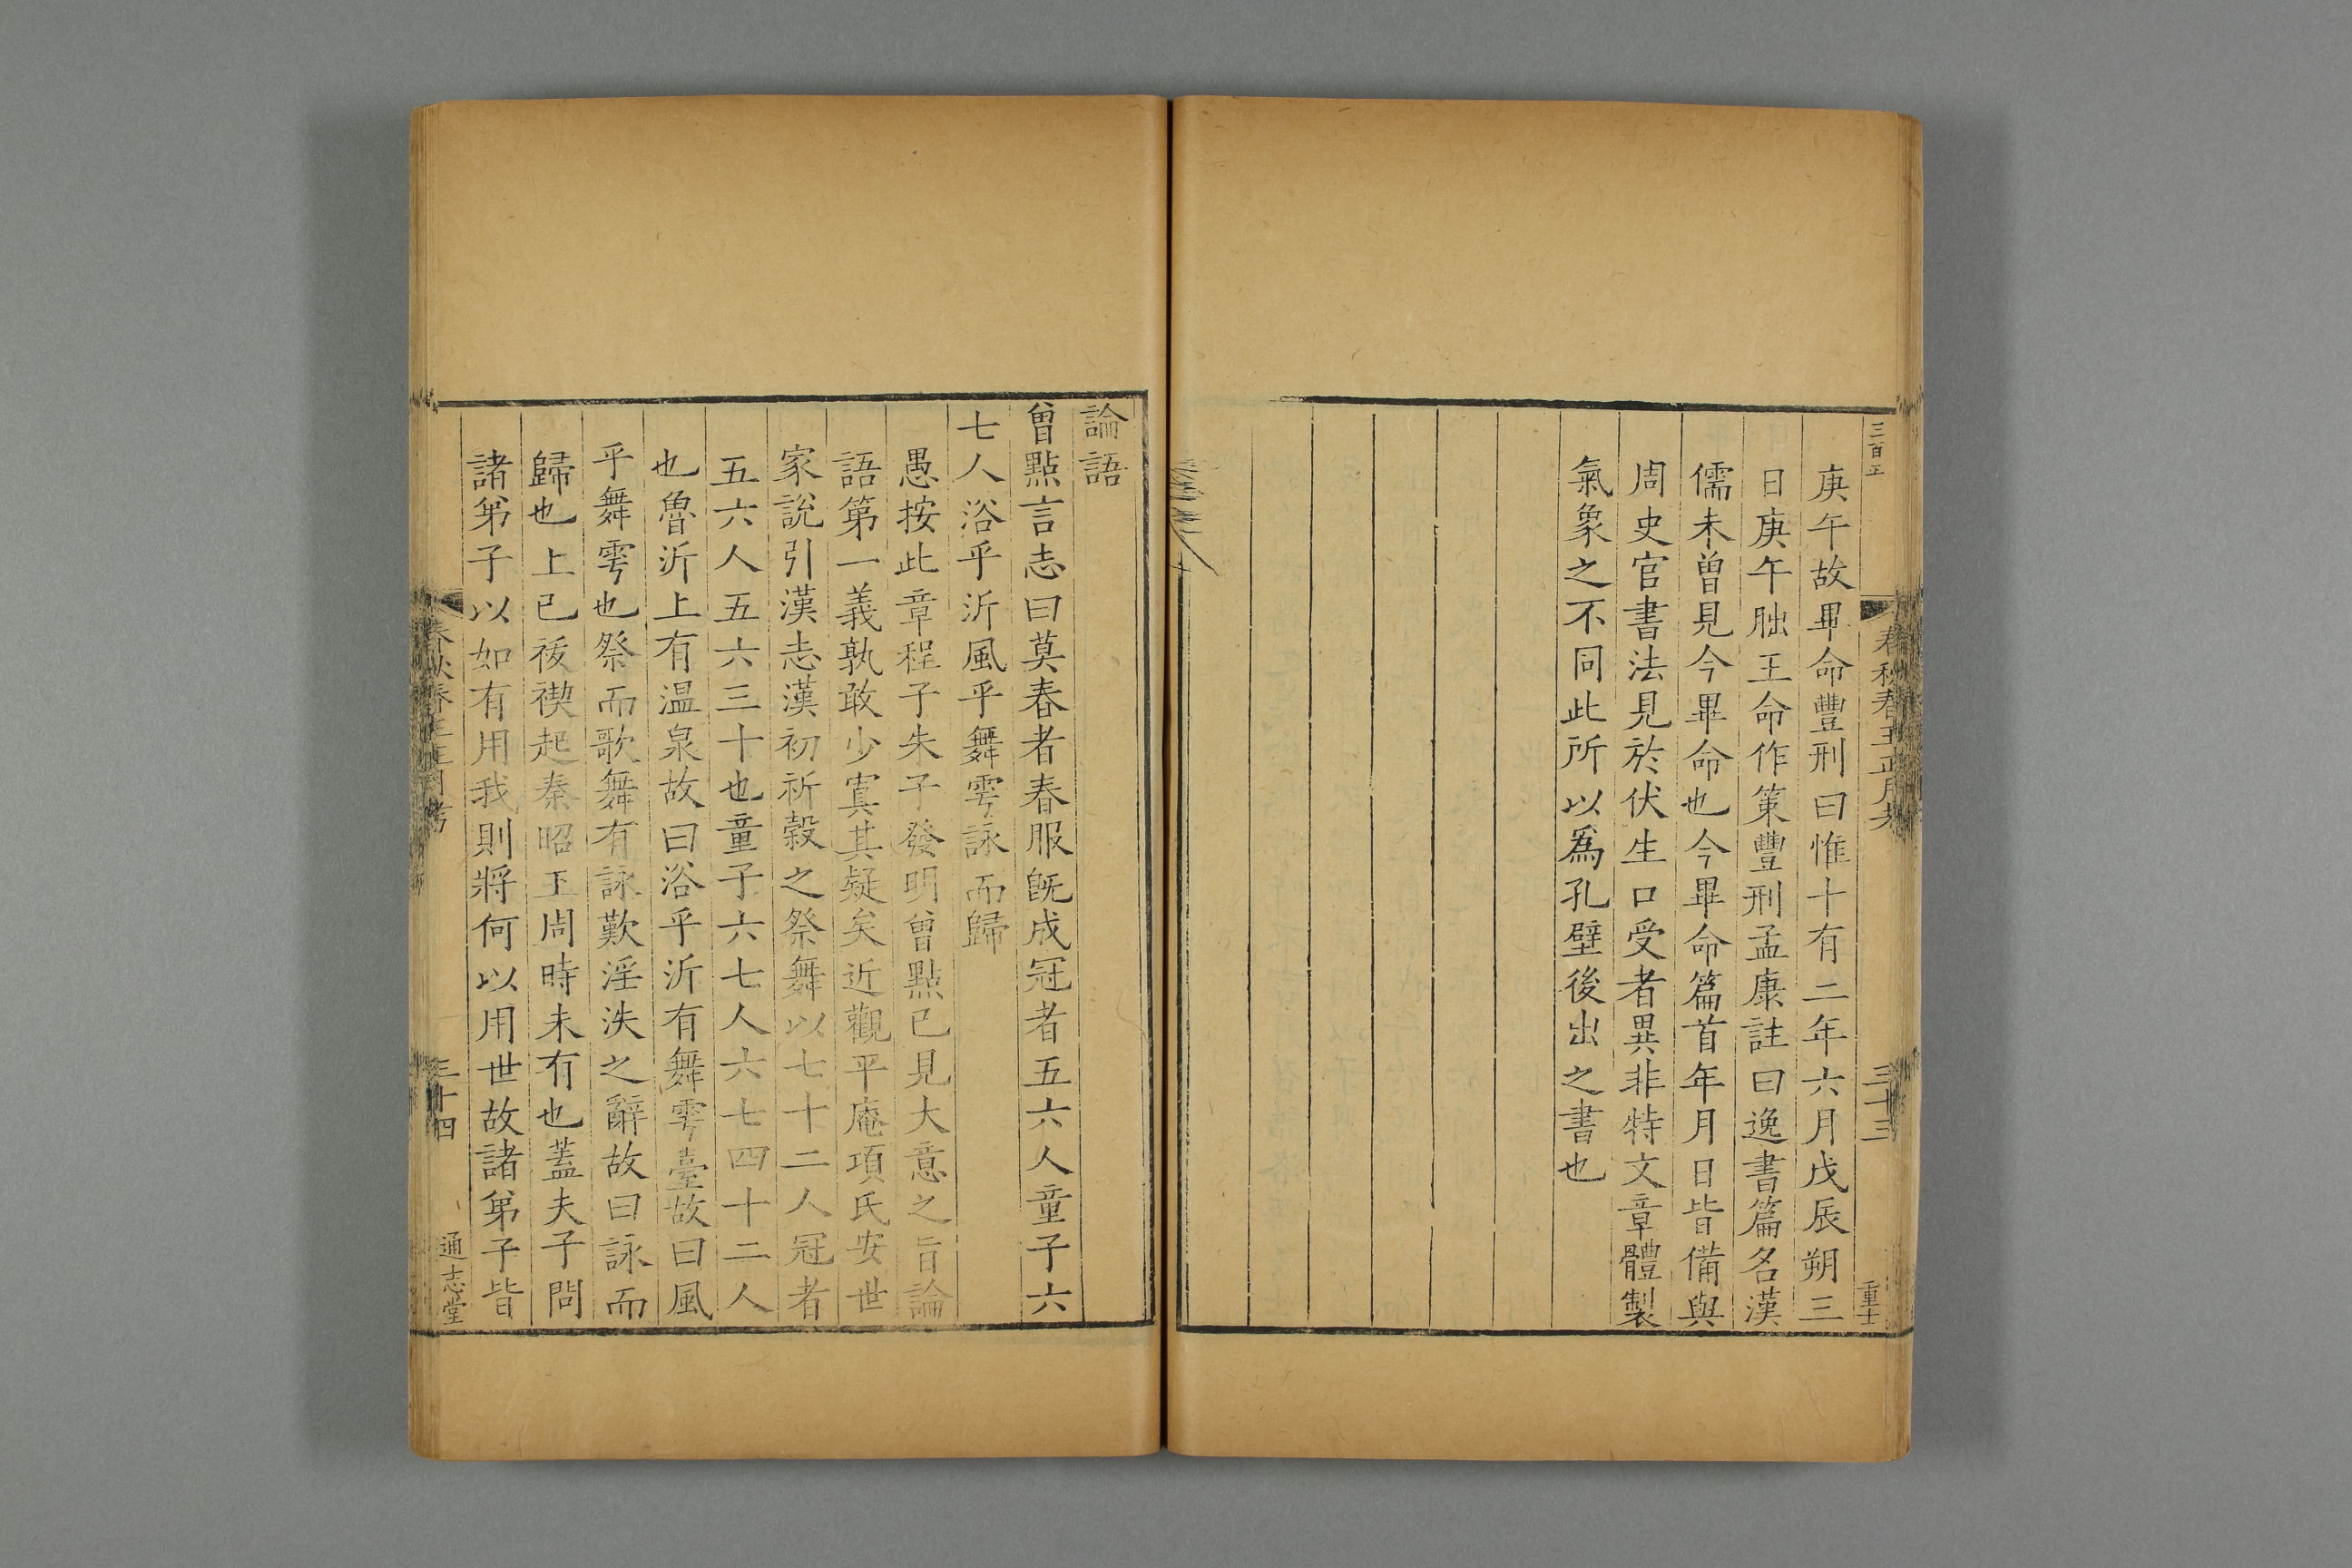 三百五
春秋春王正月考
三十三
重士
庚午故畢命豐刑曰惟十有二年六月戊辰朔三
日庚午朏王命作策豐刑孟康註曰逸書篇名漢
儒未曾見今畢命也今畢命篇首年月日皆備與
周史官書法見於伏生口受者異非特文章體製
氣象之不同此所以為孔壁後出之書也
論語
曾點言志曰莫春者春服既成冠者五六人童子六
七人浴乎沂風乎舞雩詠而歸
愚按此章程子朱子發明曾點已見大意之旨論
語第一義孰敢少寘其疑矣近觀平庵項氏安世
家說引漢志漢初祈穀之祭舞以七十二人冠者
五六人五六三十也童子六七人六七四十二人
也魯沂上有温泉故曰浴乎沂有舞雩臺故曰風
乎舞雩也祭而歌舞有詠歎淫泆之辭故曰詠而
歸也上巳祓禊起秦昭王周時未有也蓋夫子問
諸弟子以如有用我則將何以用世故諸弟子皆
春秋春王正月考
三十四
通志堂